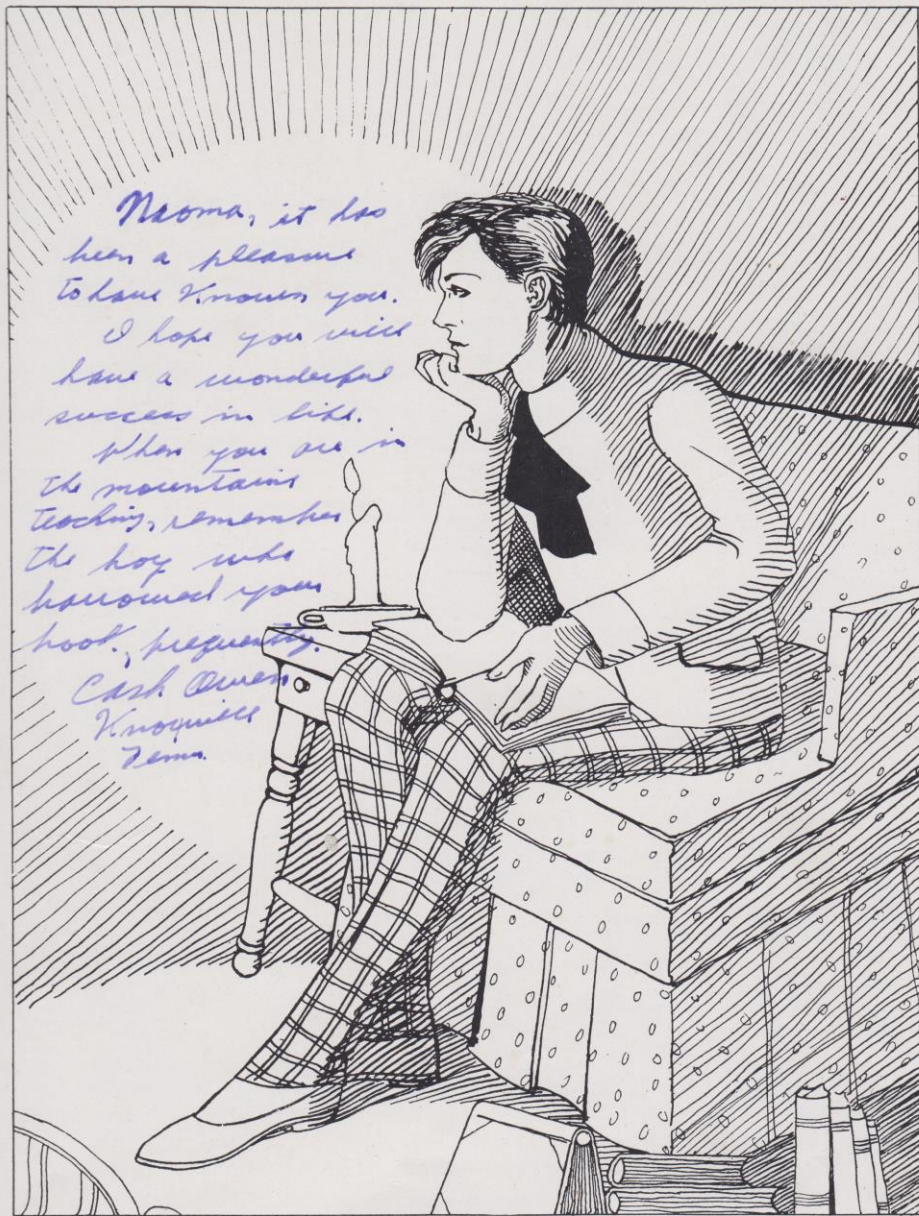 Naoma, it has
been a pleasure
to have known you.
I hope you will
have a wonderful
success in life.
When you are in
the mountains
teaching, remember
the boy who
borrowed your
book, frequently.
Cash Owen
Knoxville
Tenn.